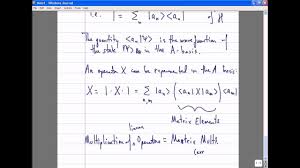 i.e. 1 = Σ_n |a_n> <a_n| of H
The quantity <a_n|Ψ> is the wavefunction of
the state |Ψ> in the A-basis.
An operator X can be represented in the A basis:
X = 1·X·1 = Σ_{n,m} |a_n> <a_n|X|a_m> <a_m|
Matrix Elements
linear
Multiplication of Operators = Matrix Mult